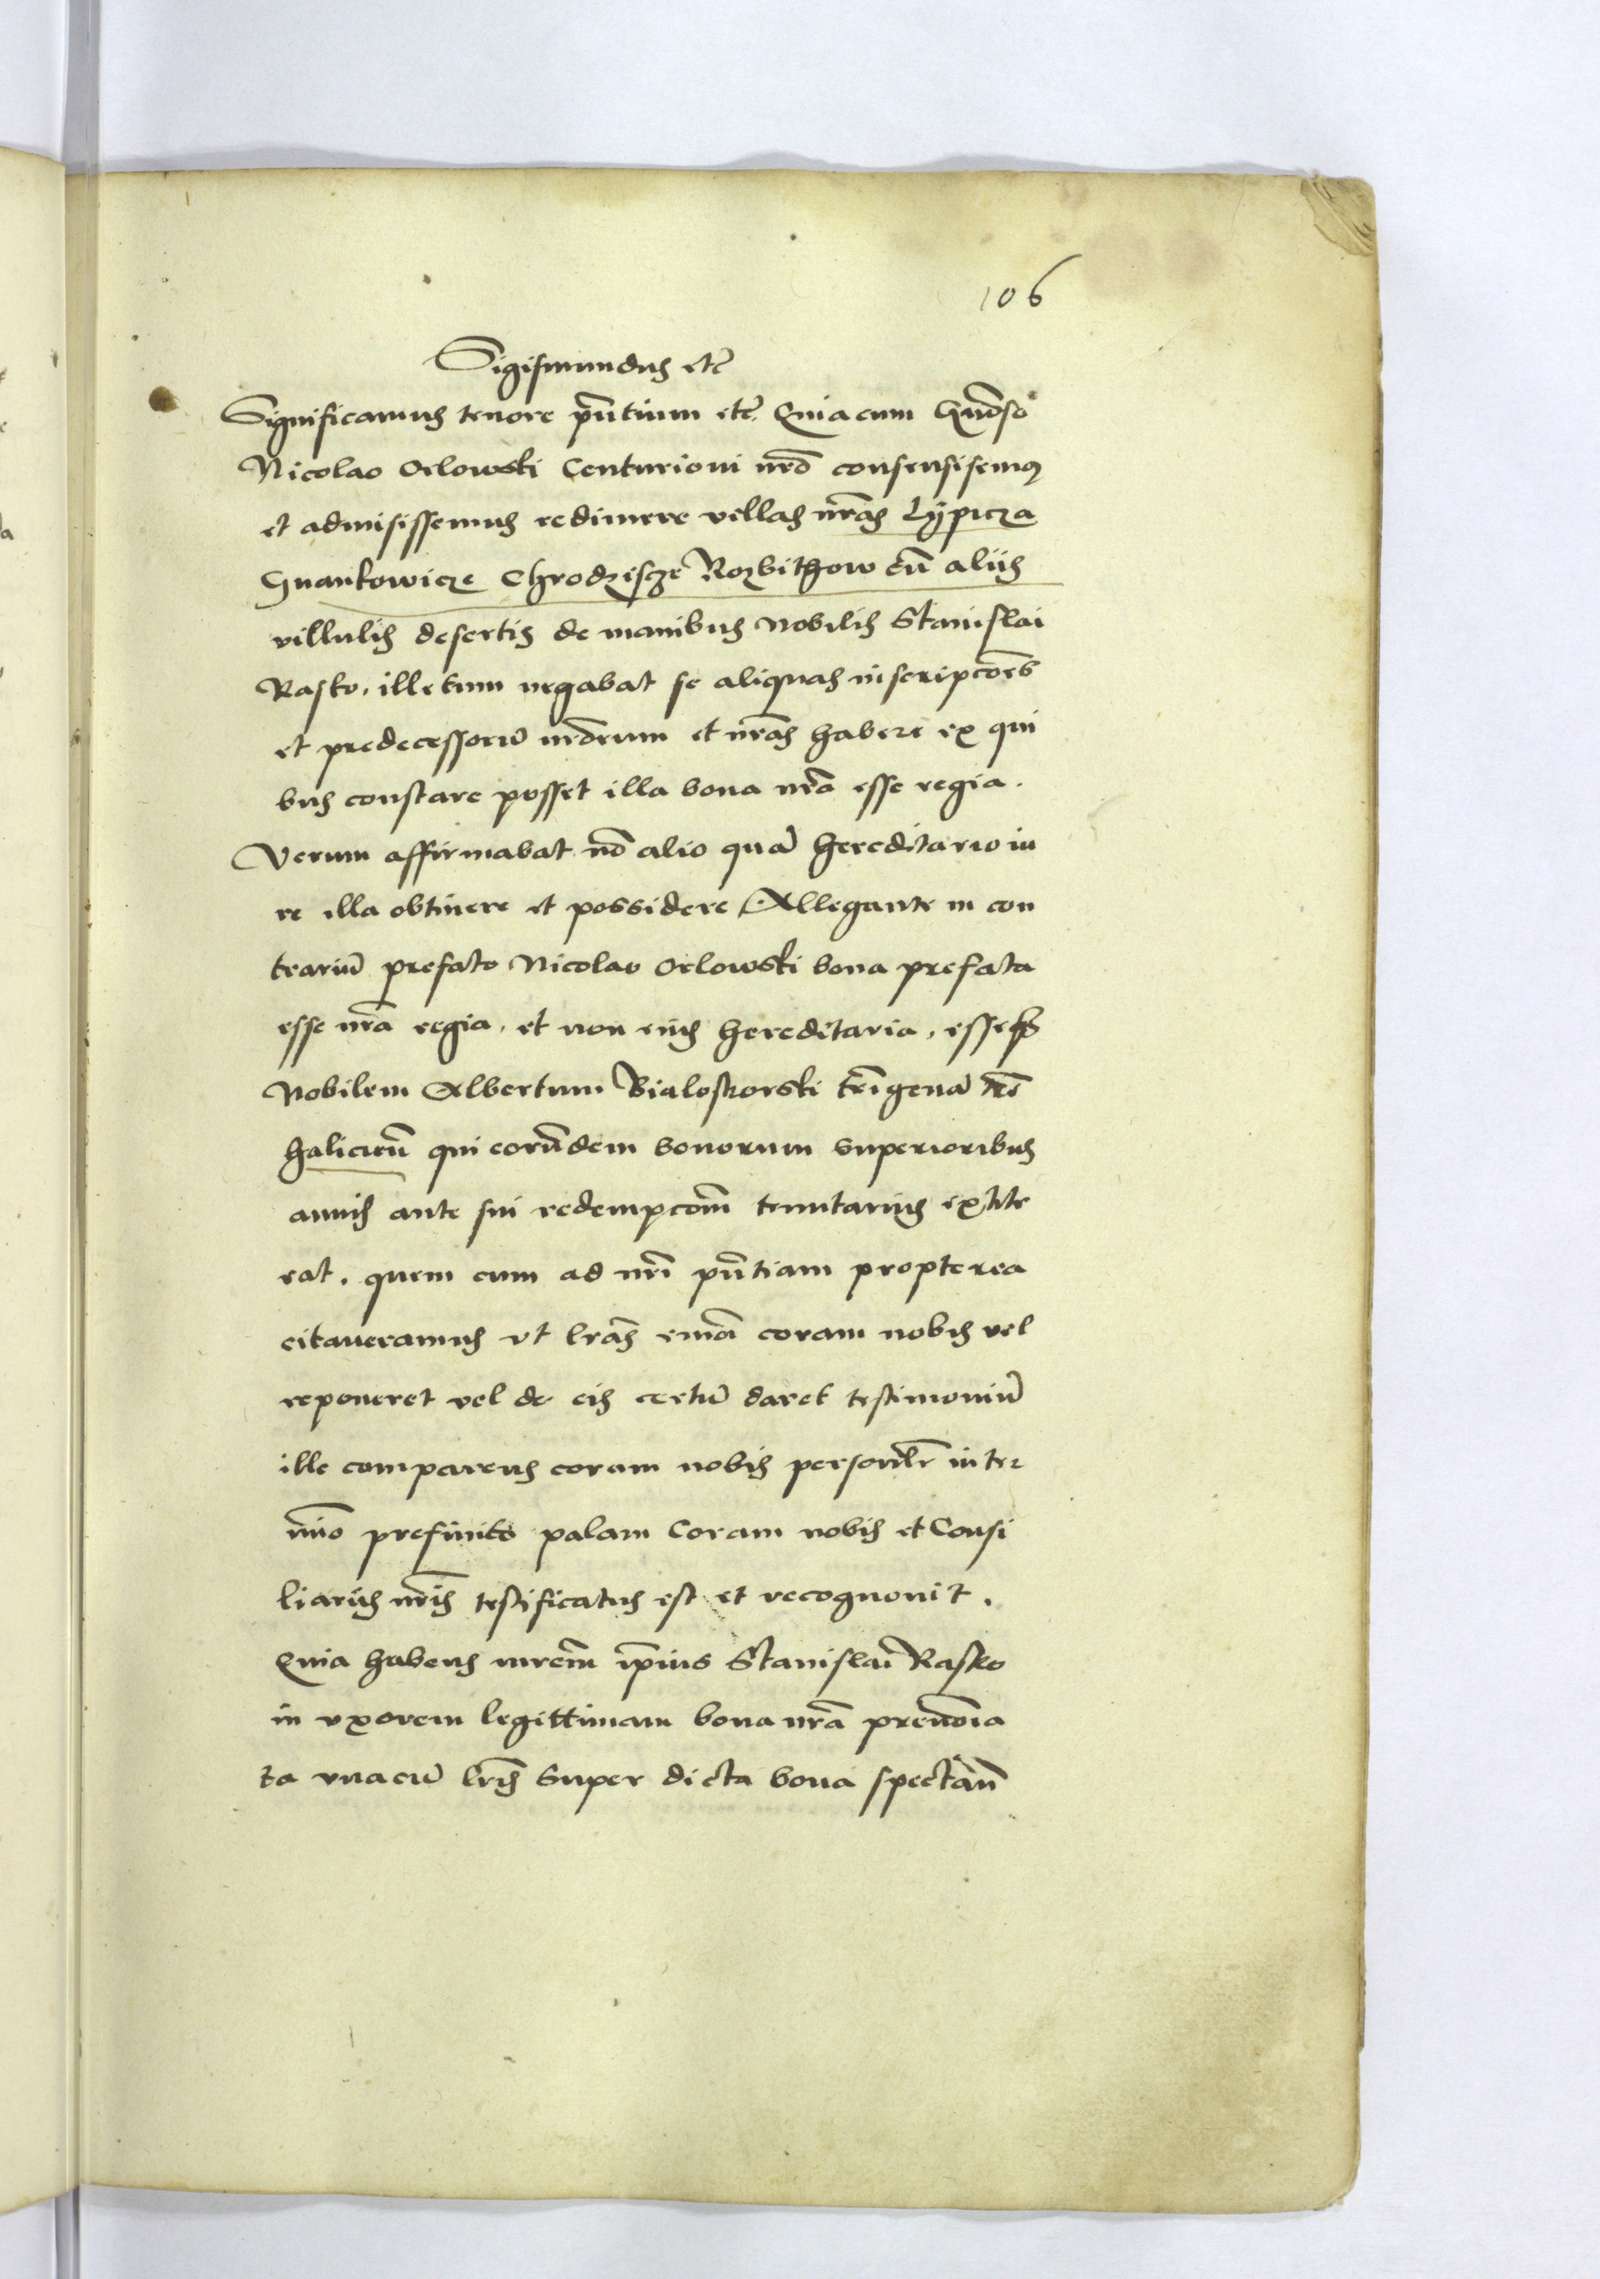 106
Sigismundus etc̄
Significamus tenore pn̄tium etc̄ Quia cum Gn̄oso
Nicolao Orlowski Centurioni nr̄o consensisemus
et admisissemus redimere villas nr̄as Lypicza
Gnankowicze Chrodzische Rozbithow cū aliis
villulis desertis de manibus Nobilis Stanislai
Rasko, ille tum negabat se aliquas inscripcōes
et predecessorū nr̄orum et nr̄as habere ex qui
bus constare posset illa bona nr̄a esse regia.
Verum affirmabat nō alio quā hereditario iu
re illa obtinere et possidere Allegante in con
trariū prefato Nicolao Orlowski bona prefata
esse nr̄a regia, et non eius hereditaria, esseq3
Nobilem Albertum Bialoskorski tr̄igenā
haliciēn̄ qui eorūdem bonorum superioribus
annis ante sui redempcōm tenutarius extite
rat. quem cum ad nr̄i pn̄tiam propterea
citaveramus vt lr̄as coram nobis vel
reponeret vel de eis certū daret testimoniū
ille comparens coram nobis personlr̄ in ter
mīo prefinito palam Coram nobis et Consi
liariis nr̄is testificatus est et recognovit.
Quia habens mr̄em ip̄ius Stanislai Rasko
in vxorem legittimam bona nr̄a prenōia
ta vnacū lr̄is super dicta bona spectan̄